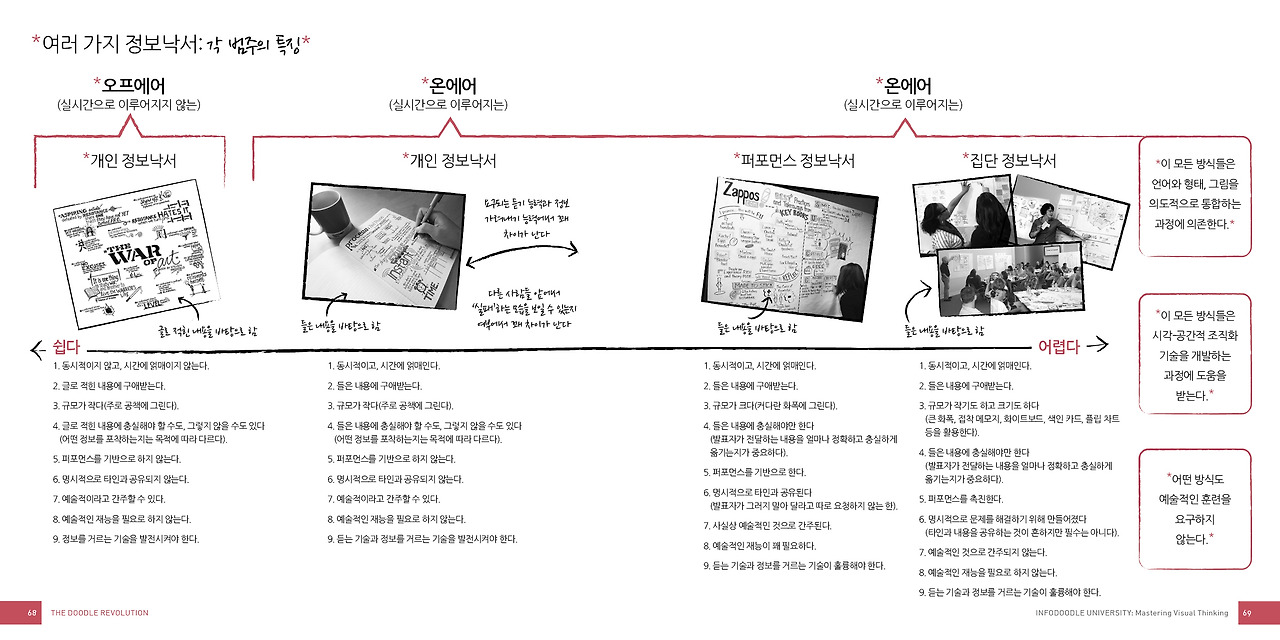 *여러 가지 정보낙서: 각 범주의 특징*
*오프에어
(실시간으로 이루어지지 않는)
*온에어
(실시간으로 이루어지는)
*온에어
(실시간으로 이루어지는)
*개인 정보낙서
THE
WAR
OF
art
글로 적힌 내용을 바탕으로 함
*개인 정보낙서
들은 내용을 바탕으로 함
요구되는 듣기 능력과 정보
가려내기 능력에서 꽤
차이가 난다
다른 사람들 앞에서
'실패'하는 모습을 보일 수 있는지
여부에서 꽤 차이가 난다
*퍼포먼스 정보낙서
Zappos
KEY BOOKS
MADE TO STICK
들은 내용을 바탕으로 함
*집단 정보낙서
들은 내용을 바탕으로 함
쉽다
어렵다
1. 동시적이지 않고, 시간에 얽매이지 않는다.
2. 글로 적힌 내용에 구애받는다.
3. 규모가 작다(주로 공책에 그린다).
4. 글로 적힌 내용에 충실해야 할 수도, 그렇지 않을 수도 있다
(어떤 정보를 포착하는지는 목적에 따라 다르다).
5. 퍼포먼스를 기반으로 하지 않는다.
6. 명시적으로 타인과 공유되지 않는다.
7. 예술적이라고 간주할 수 있다.
8. 예술적인 재능을 필요로 하지 않는다.
9. 정보를 거르는 기술을 발전시켜야 한다.
1. 동시적이고, 시간에 얽매인다.
2. 들은 내용에 구애받는다.
3. 규모가 작다(주로 공책에 그린다).
4. 들은 내용에 충실해야 할 수도, 그렇지 않을 수도 있다
(어떤 정보를 포착하는지는 목적에 따라 다르다).
5. 퍼포먼스를 기반으로 하지 않는다.
6. 명시적으로 타인과 공유되지 않는다.
7. 예술적이라고 간주할 수 있다.
8. 예술적인 재능을 필요로 하지 않는다.
9. 듣는 기술과 정보를 거르는 기술을 발전시켜야 한다.
1. 동시적이고, 시간에 얽매인다.
2. 들은 내용에 구애받는다.
3. 규모가 크다(커다란 화폭에 그린다).
4. 들은 내용에 충실해야만 한다
(발표자가 전달하는 내용을 얼마나 정확하고 충실하게
옮기는지가 중요하다).
5. 퍼포먼스를 기반으로 한다.
6. 명시적으로 타인과 공유된다
(발표자가 그러지 말아 달라고 따로 요청하지 않는 한).
7. 사실상 예술적인 것으로 간주된다.
8. 예술적인 재능이 꽤 필요하다.
9. 듣는 기술과 정보를 거르는 기술이 훌륭해야 한다.
1. 동시적이고, 시간에 얽매인다.
2. 들은 내용에 구애받는다.
3. 규모가 작기도 하고 크기도 하다
(큰 화폭, 접착 메모지, 화이트보드, 색인 카드, 플립 차트
등을 활용한다).
4. 들은 내용에 충실해야만 한다
(발표자가 전달하는 내용을 얼마나 정확하고 충실하게
옮기는지가 중요하다).
5. 퍼포먼스를 촉진한다.
6. 명시적으로 문제를 해결하기 위해 만들어졌다
(타인과 내용을 공유하는 것이 흔하지만 필수는 아니다).
7. 예술적인 것으로 간주되지 않는다.
8. 예술적인 재능을 필요로 하지 않는다.
9. 듣는 기술과 정보를 거르는 기술이 훌륭해야 한다.
*이 모든 방식들은
언어와 형태, 그림을
의도적으로 통합하는
과정에 의존한다.*
*이 모든 방식들은
시각-공간적 조직화
기술을 개발하는
과정에 도움을
받는다.*
*어떤 방식도
예술적인 훈련을
요구하지
않는다.*
68 THE DOODLE REVOLUTION
INFODOODLE UNIVERSITY: Mastering Visual Thinking 69